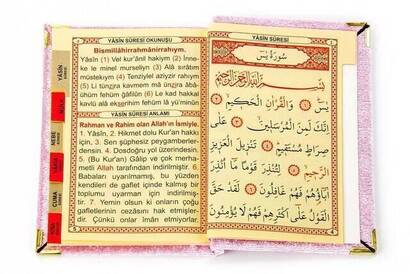 YÂSÎN SÛRESİ OKUNUŞU
Bismillâhirrahmânirrahîym.
Yâsîn (1) Vel kur'ânil hakiym (2) İnne-
ke le minel murseliyn (3) Alâ sırâtım
müstekıym (4) Tenziylel azîyzir rahıym
(5) Li tünzira kavmem mâ ünzira âbâ-
ühüm fehüm ğâfilûn (6) Le kad hakkal
kavlü alâ ekserihim fehüm lâ yü'minûn
YÂSÎN SÛRESİ ANLAMI
Rahman ve Rahim olan Allah'ın İsmiyle.
1. Yâsîn, 2. Hikmet dolu Kur'an hakkı
için, 3. Sen şüphesiz peygamberler-
densin. 4. Dosdoğru yol üzerindesin.
5. (Bu Kur'an) Gâlip ve çok merha-
metli Allah tarafından indirilmiştir. 6.
Babaları uyarılmamış, bu yüzden
kendileri de gaflet içinde kalmış bir
toplumu uyarman için indirilmiş-
tir. 7. Yemin olsun ki onların çoğu
gafletlerinin cezasını hak etmişler-
dir. Çünkü onlar îman etmiyorlar.
YÂSÎN
CUMA
YÂSÎN SÛRESİ
سُورَةُ يٰسٓ
بِسْمِ اللّٰهِ الرَّحْمٰنِ الرَّحِيمِ
يٰسٓ ﴿١﴾ وَالْقُرْاٰنِ الْحَكِيمِ ﴿٢﴾
اِنَّكَ لَمِنَ الْمُرْسَلِينَ ﴿٣﴾ عَلٰى
صِرَاطٍ مُسْتَقِيمٍ ﴿٤﴾ تَنْزِيلَ الْعَزِيزِ
الرَّحِيمِ ﴿٥﴾ لِتُنْذِرَ قَوْمًا مَٓا اُنْذِرَ
اٰبَٓاؤُهُمْ فَهُمْ غَافِلُونَ ﴿٦﴾ لَقَدْ حَقَّ
الْقَوْلُ عَلٰٓى اَكْثَرِهِمْ فَهُمْ لَا يُؤْمِنُونَ